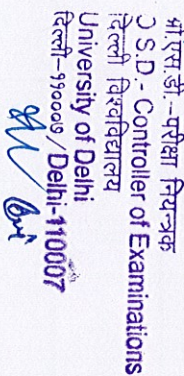 श्री.एस.डी.-परीक्षा नियन्त्रक
O S.D.- Controller of Examinations
दिल्ली विश्वविद्यालय
University of Delhi
दिल्ली-११०००७ / Delhi-110007